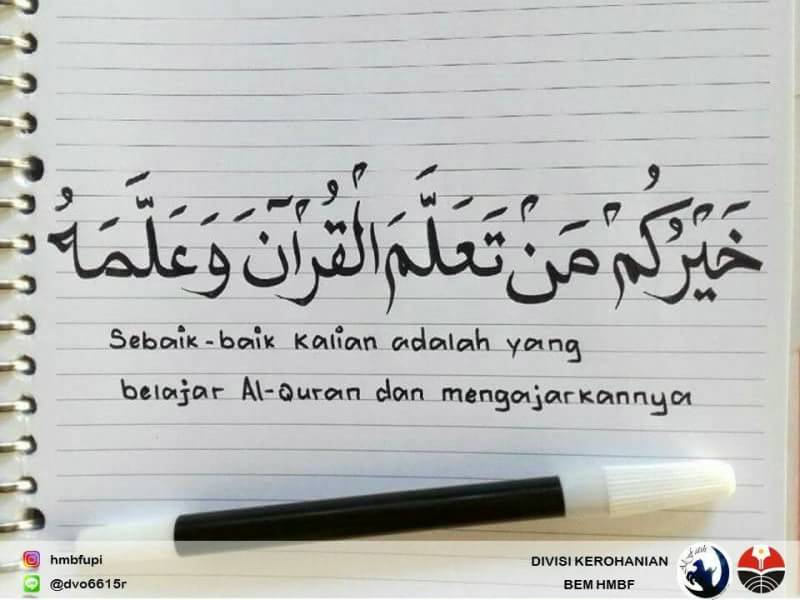 خَيْرُكُمْ مَنْ تَعَلَّمَ الْقُرْآنَ وَعَلَّمَهُ
Sebaik-baik kalian adalah yang
belajar Al-Quran dan mengajarkannya
hmbfupi
@dvo6615r
DIVISI KEROHANIAN
BEM HMBF